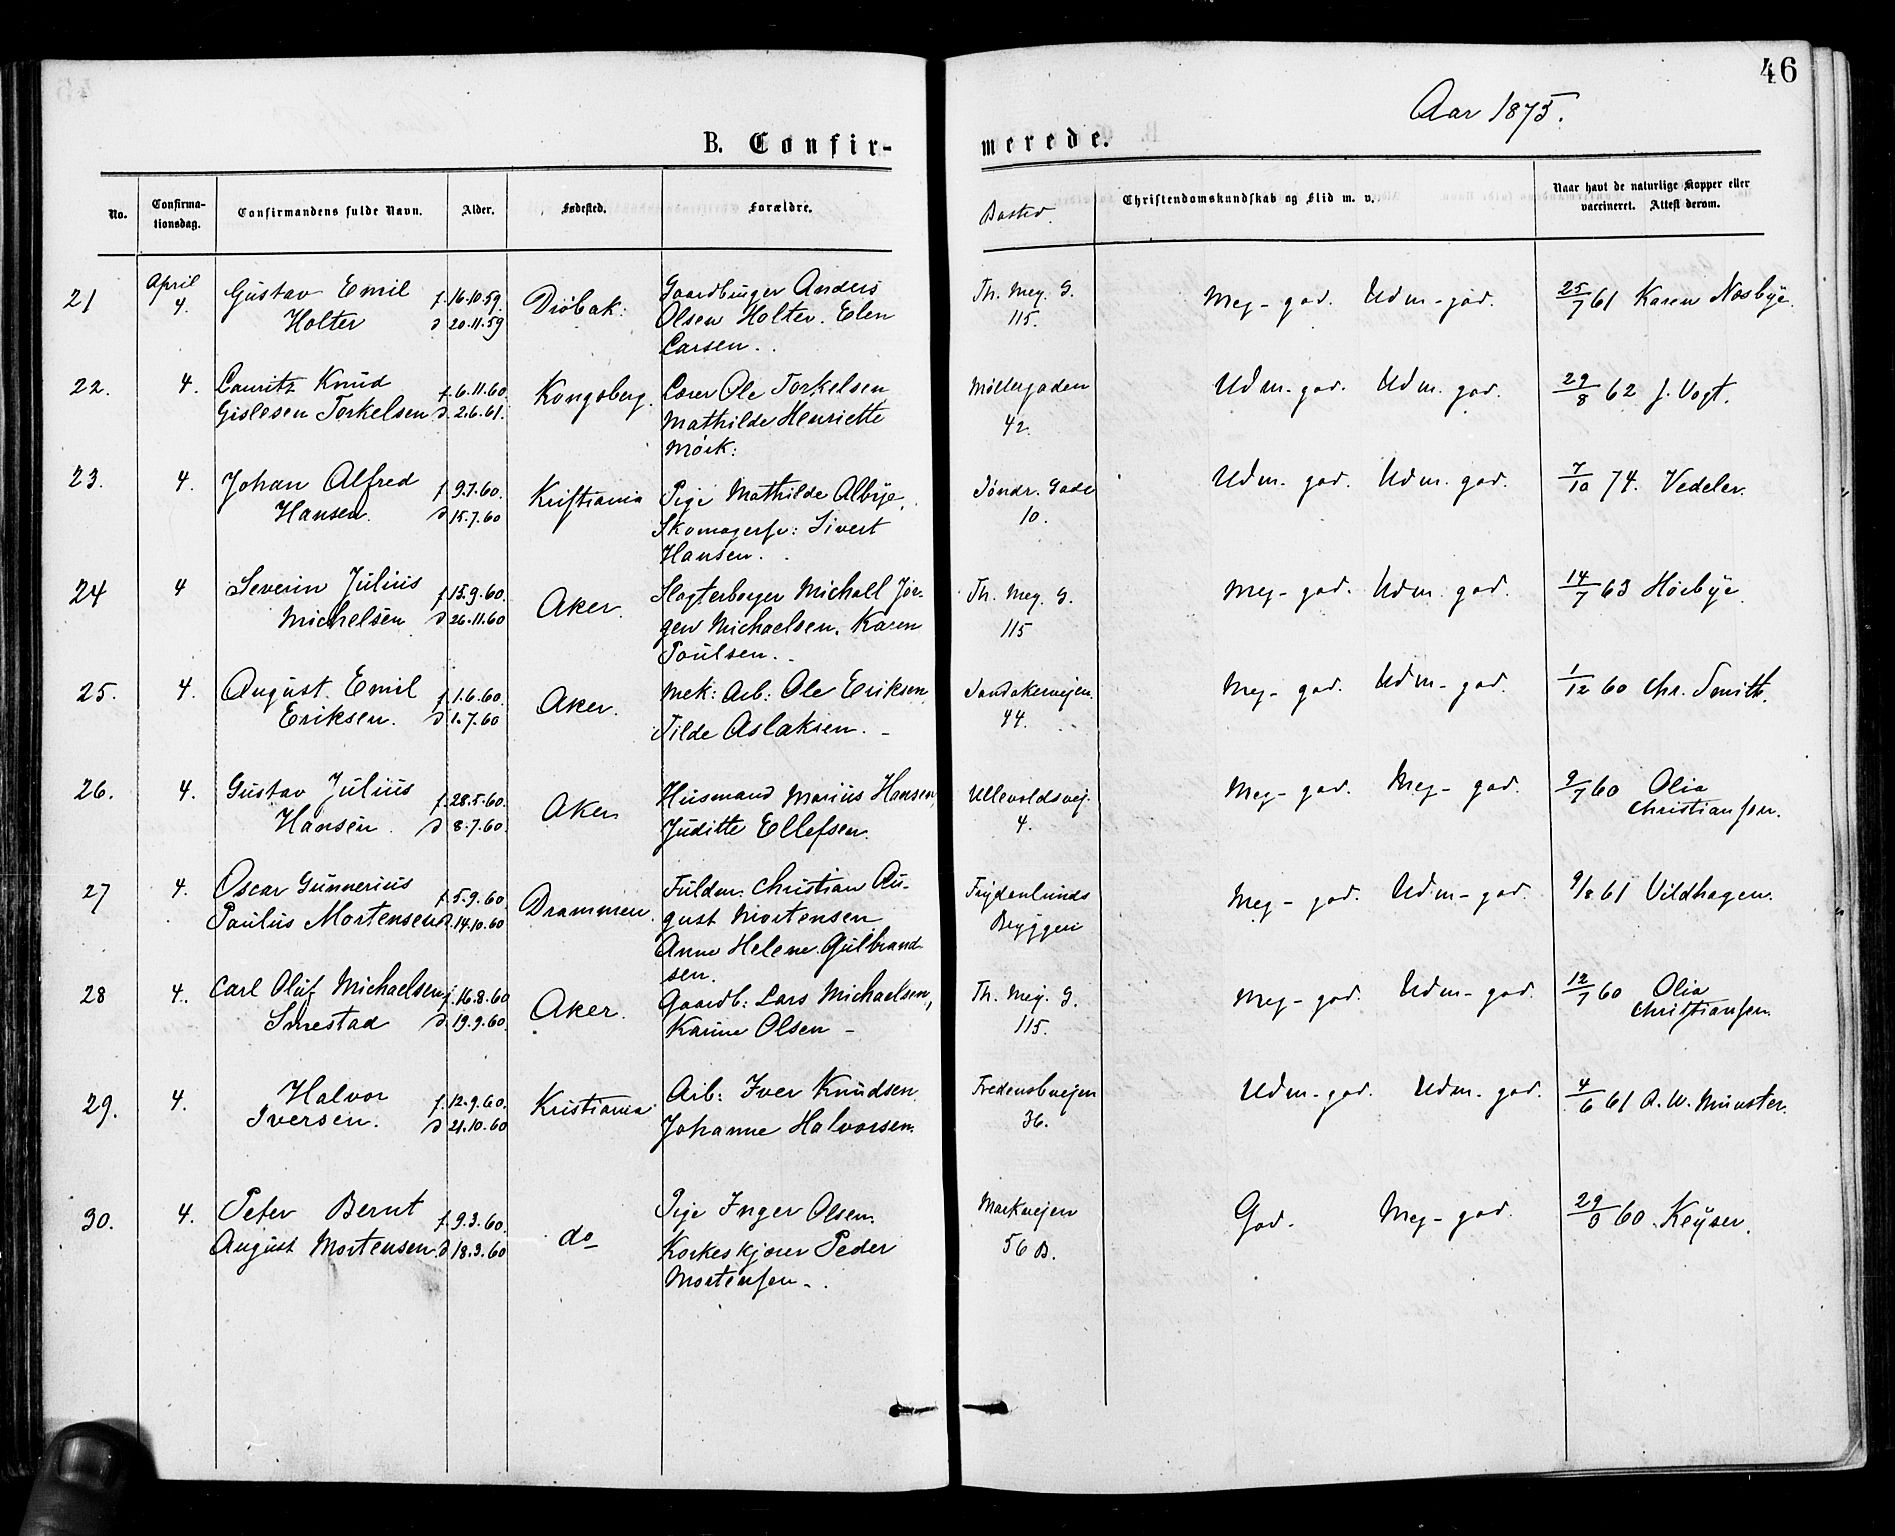 46
Aar 1875.
B. Confir-
merede.
No.
Confirma-
tionsdag.
Confirmandens fulde Navn.
Alder.
Fødested.
Forældre.
Bosted.
Christendomskundskab og Flid m. v.
Naar havt de naturlige Kopper eller
vaccineret. Attest derom.
21 April 4. Gustav Emil f. 16.10.59. Drøbak. Gaardbruger Anders Th. Mey. G. Meg. god. Udm. god. 25/7 61 Karen Nosbye.
Holter d 20.11.59 Olsen Holter. Elen 115.
Larsen.
22. 4. Lauritz Knud f. 6.11.60. Kongsberg. Lærer Ole Torkelsen Møllergaden Udm. god. Udm. god. 29/8 62 J. Vogt.
Gislesen Torkelsen d. 2.6.61. Mathilde Henriette 42.
Mørk.
23. 4. Johan Alfred f 9.7.60. Kristiania Pige Mathilde Albye, Søndr. Gade Udm. god. Udm. god. 7/10 74. Vedeler.
Hansen. d 15.7.60 Skomagersv: Sivert 10.
Hansen.
24 4 Severin Julius f 15.9.60. Aker. Slagterborger Michall Jør- Th. Mey. G. Meg. god. Udm. god. 14/7 63 Høibye
Michelsen d 26.11.60 gen Michaelsen. Karen 115
Poulsen.
25. 4. August Emil f. 1.6.60. Aker. Mek: Arb: Ole Eriksen Sandakerveien. Meg. god. Udm. god. 1/12 60 Chr. Smith.
Eriksen. d 1.7.60 Tilde Aslaksen. 44.
26. 4. Gustav Julius f. 28.5.60. Aker Husmand Marius Hansen, Ullevoldsvej. Meg. god. Meg. god. 9/7 60 Olia
Hansen. d 8.7.60. Juditte Ellefsen. 4. Christiansen.
27 4. Oscar Gunnerius f. 5.9.60. Drammen. Fuldm. Christian Au- Frydenlunds Meg. god. Udm. god. 9/8 61 Vildhagen.
Paulus Mortensen d. 14.10.60 gust Mortensen Bryggeri
Anne Helene Gulbrand-
sen.
28 4. Carl Oluf Michaelsen f. 16.8.60 Aker. Gaardb: Lars Michaelsen, Th. Mey. G. Meg. god. Udm. god. 12/7 60 Olia
Smestad d. 19.9.60. Karine Olsen 115. Christiansen.
29. 4. Halvor f. 12.9.60. Kristiania Arb: Iver Knudsen Fredensbvejen Udm. god. Udm. god. 4/6 61 A. W. Münster.
Iversen. d 21.10.60 Johanne Halvorsen. 36.
30. 4. Peter Bernt f. 9.3.60. do Pige Inger Olsen. Markvejen God. Meg. god. 29/9 60. Keyser.
August Mortensen. d 18.3.60 Korkeskjærer Peder 56 B.
Mortensen.